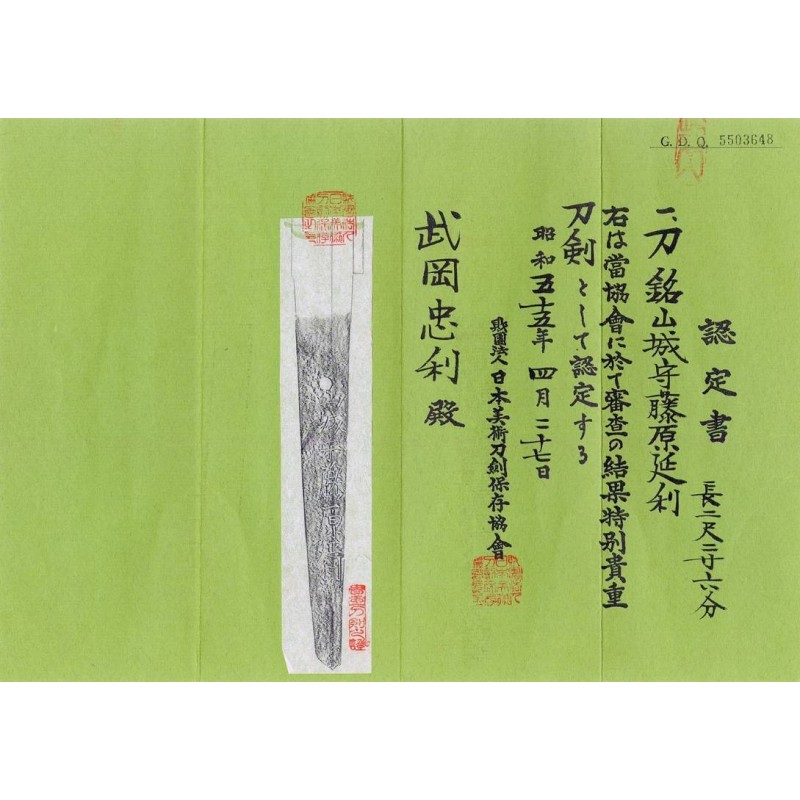 G. D. Q. 5503648
認定書
一、刀 銘 山城守藤原延利
長二尺二寸六分
右は當協會に於て審査の結果特別貴重
刀劍として認定する
昭和五十五年四月二十七日
財團法人日本美術刀劍保存協會
武岡忠利殿